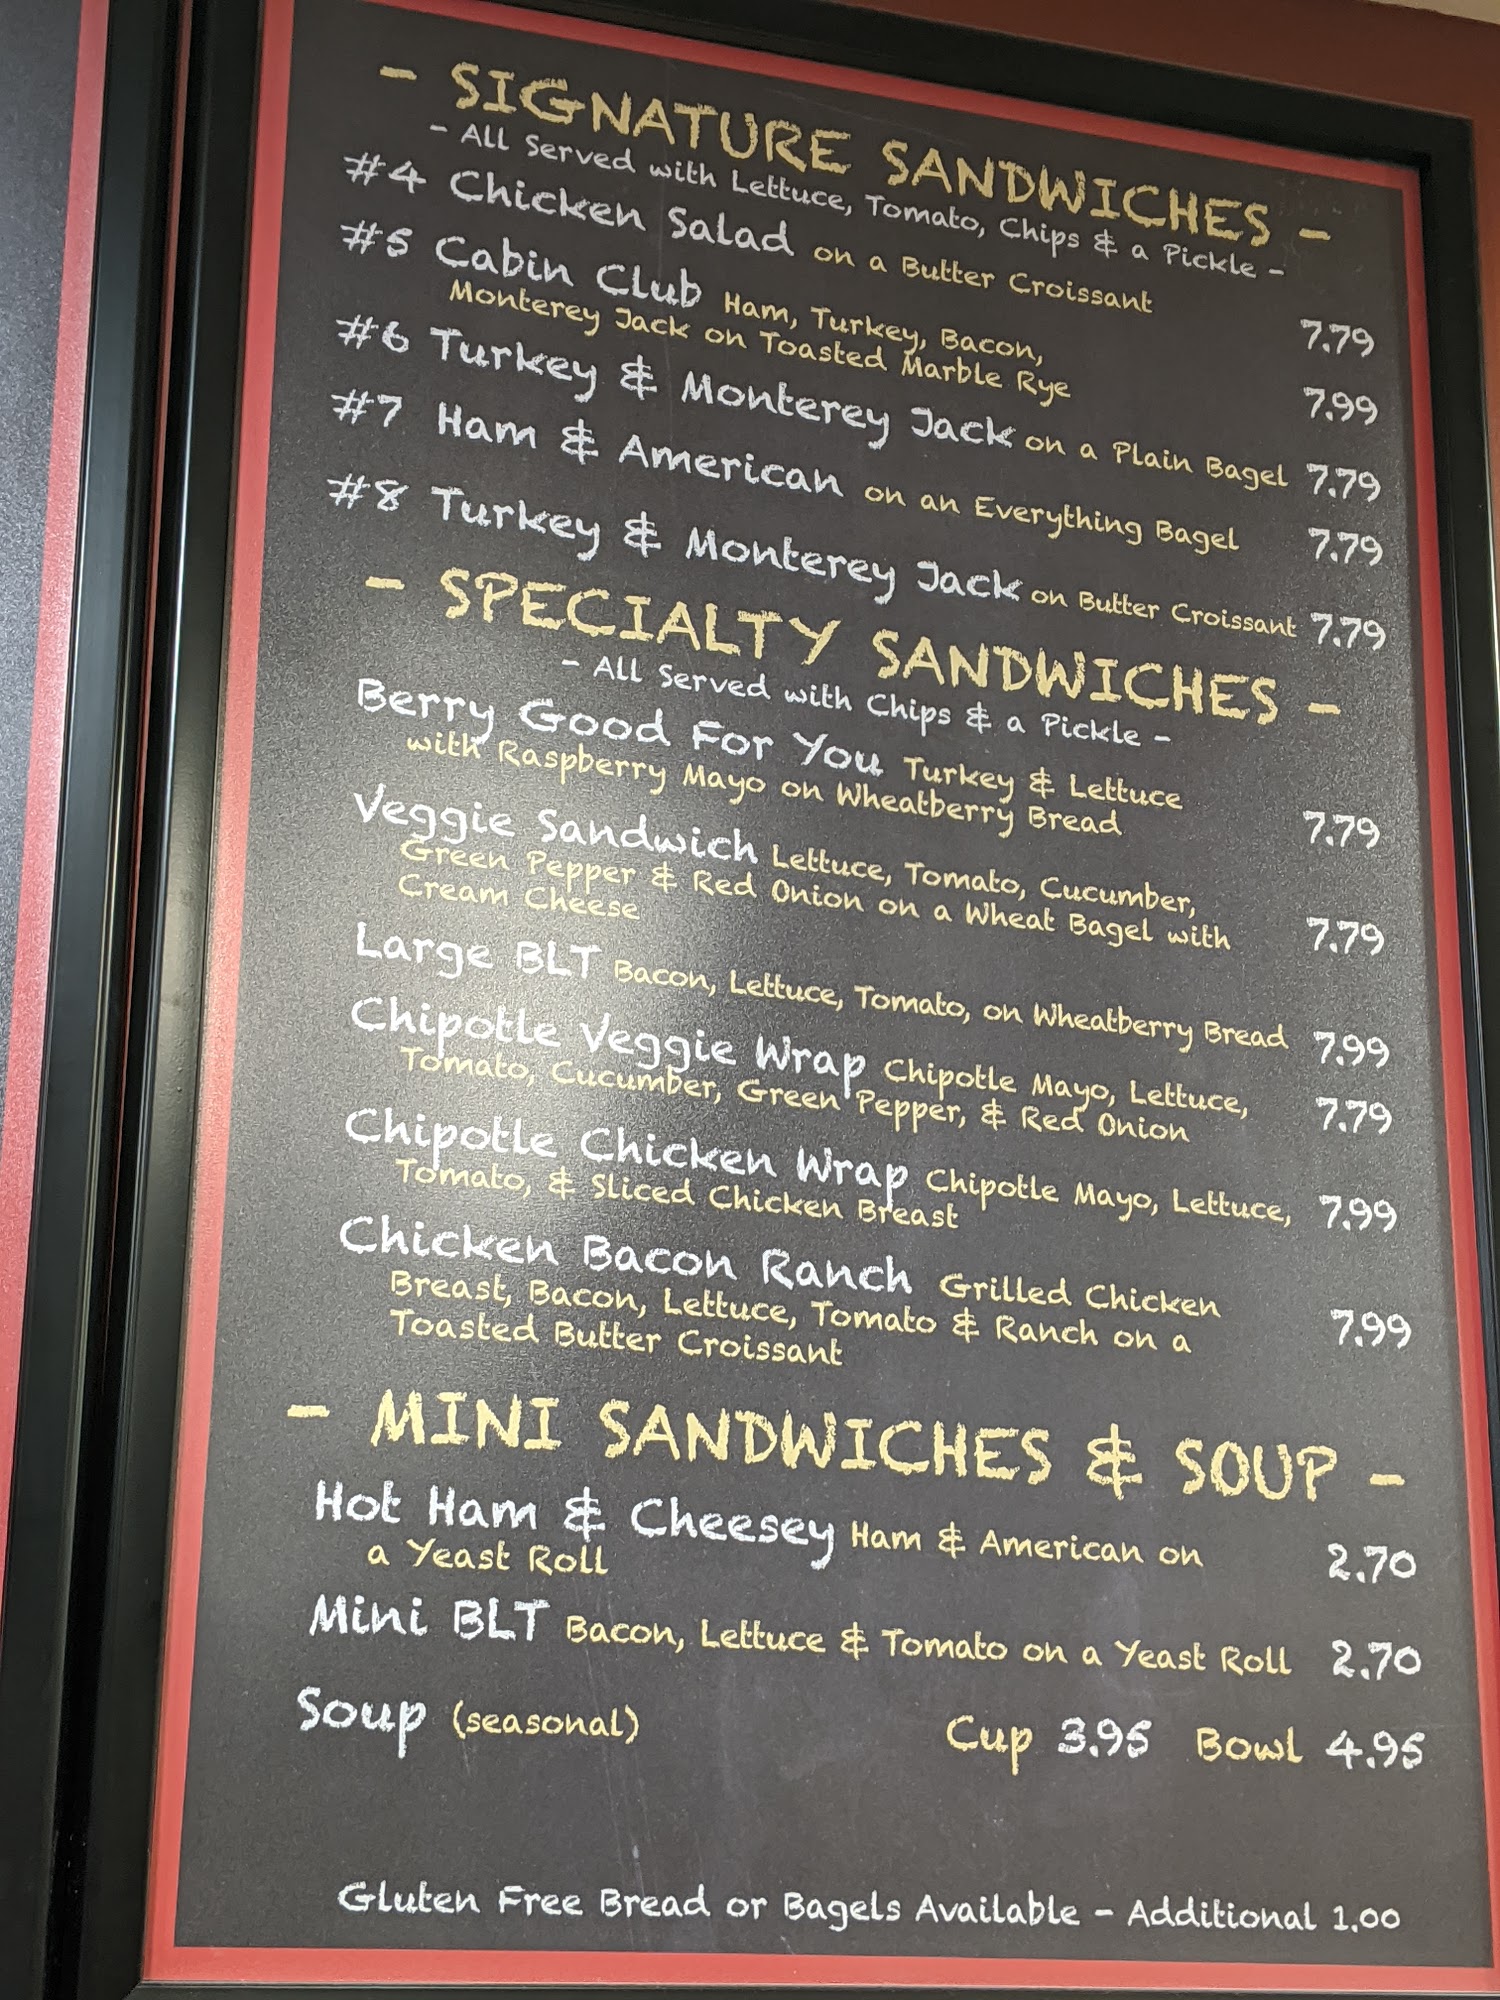 - SIGNATURE SANDWICHES -
- All Served with Lettuce, Tomato, Chips & a Pickle -
#4 Chicken Salad on a Butter Croissant 7.79
#5 Cabin Club Ham, Turkey, Bacon,
Monterey Jack on Toasted Marble Rye 7.99
#6 Turkey & Monterey Jack on a Plain Bagel 7.79
#7 Ham & American on an Everything Bagel 7.79
#8 Turkey & Monterey Jack on Butter Croissant 7.79
- SPECIALTY SANDWICHES -
- All Served with Chips & a Pickle -
Berry Good For You Turkey & Lettuce
with Raspberry Mayo on Wheatberry Bread 7.79
Veggie Sandwich Lettuce, Tomato, Cucumber,
Green Pepper & Red Onion on a Wheat Bagel with 7.79
Cream Cheese
Large BLT Bacon, Lettuce, Tomato, on Wheatberry Bread 7.99
Chipotle Veggie Wrap Chipotle Mayo, Lettuce, 7.79
Tomato, Cucumber, Green Pepper, & Red Onion
Chipotle Chicken Wrap Chipotle Mayo, Lettuce, 7.99
Tomato, & Sliced Chicken Breast
Chicken Bacon Ranch Grilled Chicken
Breast, Bacon, Lettuce, Tomato & Ranch on a 7.99
Toasted Butter Croissant
- MINI SANDWICHES & SOUP -
Hot Ham & Cheesey Ham & American on 2.70
a Yeast Roll
Mini BLT Bacon, Lettuce & Tomato on a Yeast Roll 2.70
Soup (seasonal) Cup 3.95 Bowl 4.95
Gluten Free Bread or Bagels Available - Additional 1.00